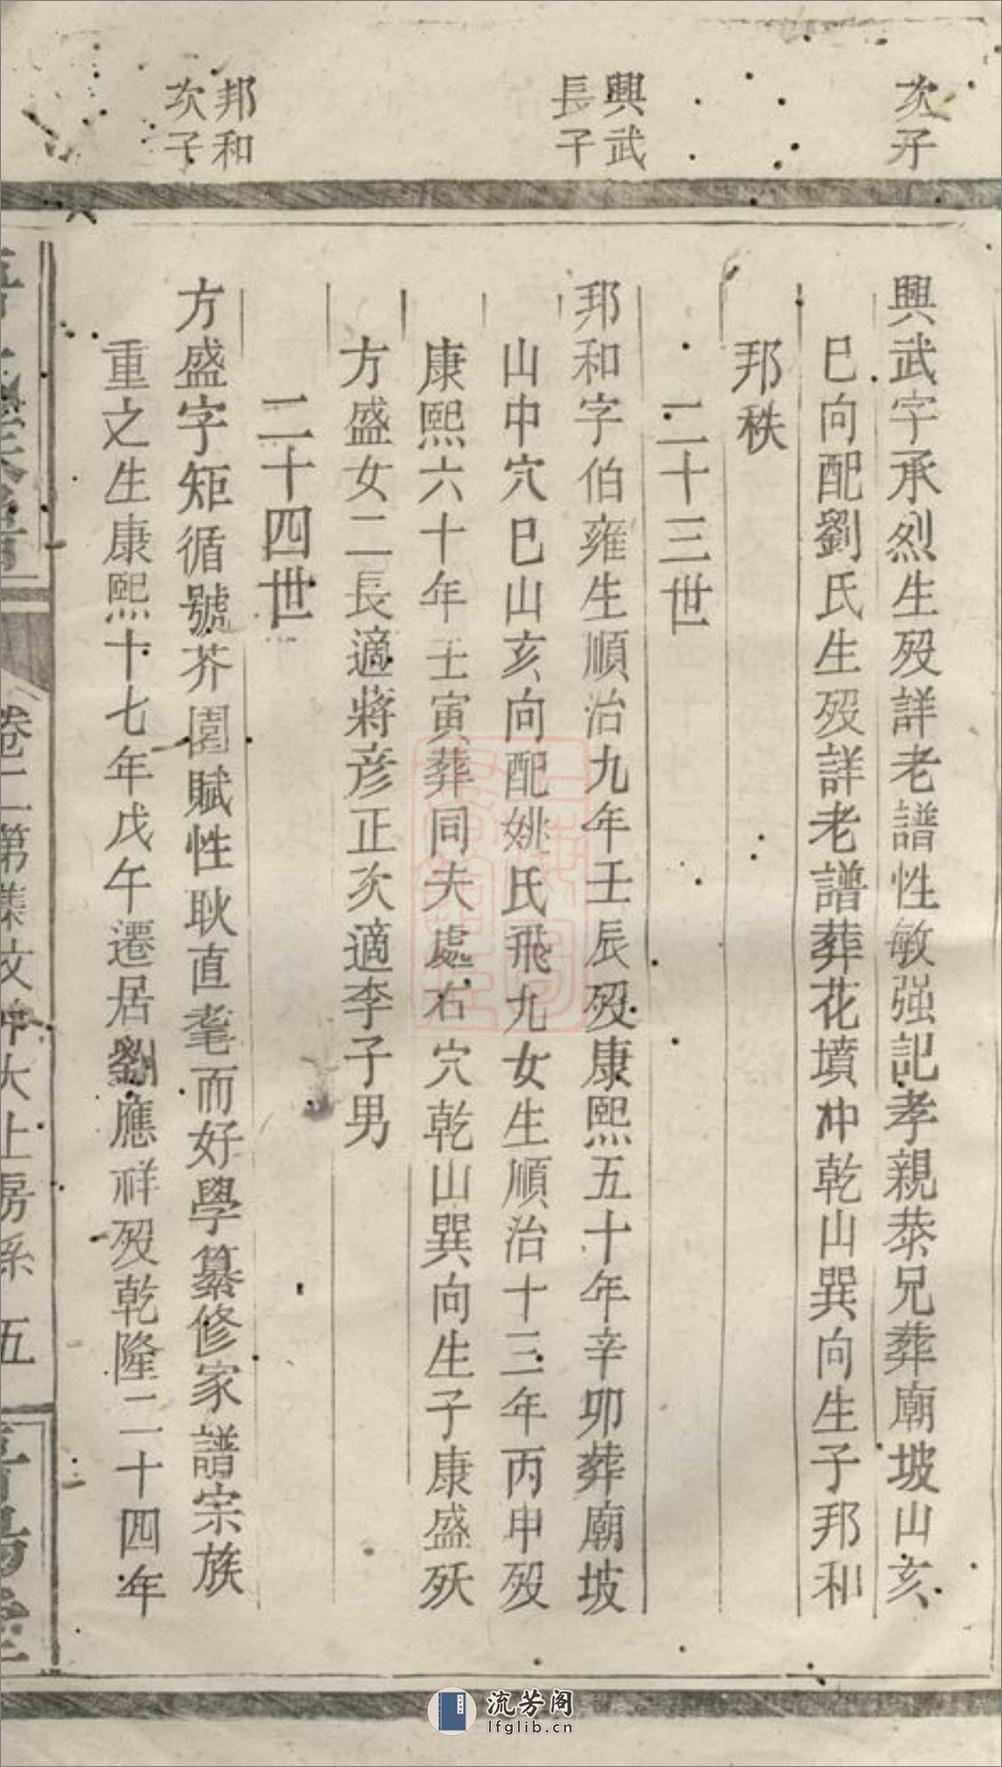 次子
興武字承烈生歿詳老譜性敏强記孝親恭兄葬廟坡山亥
巳向配劉氏生歿詳老譜葬花墳冲乾山巽向生子邦和
邦秩
二十三世
興武
長子
邦和字伯雍生順治九年壬辰歿康熙五十年辛卯葬廟坡
山中穴巳山亥向配姚氏飛九女生順治十三年丙申歿
康熙六十年壬寅葬同夫處右穴乾山巽向生子康盛殀
方盛女二長適蔣彦正次適李子男
二十四世
邦和
次子
方盛字矩循號芥園賦性耿直耄而好學纂修家譜宗族
重之生康熙十七年戊午遷居劉應祥歿乾隆二十四年
卷二第集文冲大上房系 五
流芳阁
lfglib.cn